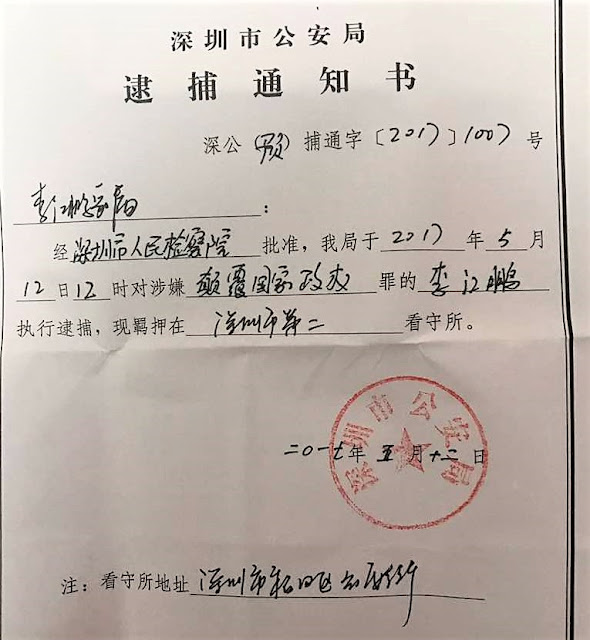 深圳市公安局
逮捕通知书
深公（预）捕通字〔2017〕1007号
李江鹏家属：
经深圳市人民检察院批准，我局于2017年5月
12日12时对涉嫌颠覆国家政权罪的李江鹏
执行逮捕，现羁押在深圳市第二看守所。
深圳市公安局
二〇一七年五月十二日
注：看守所地址深圳市